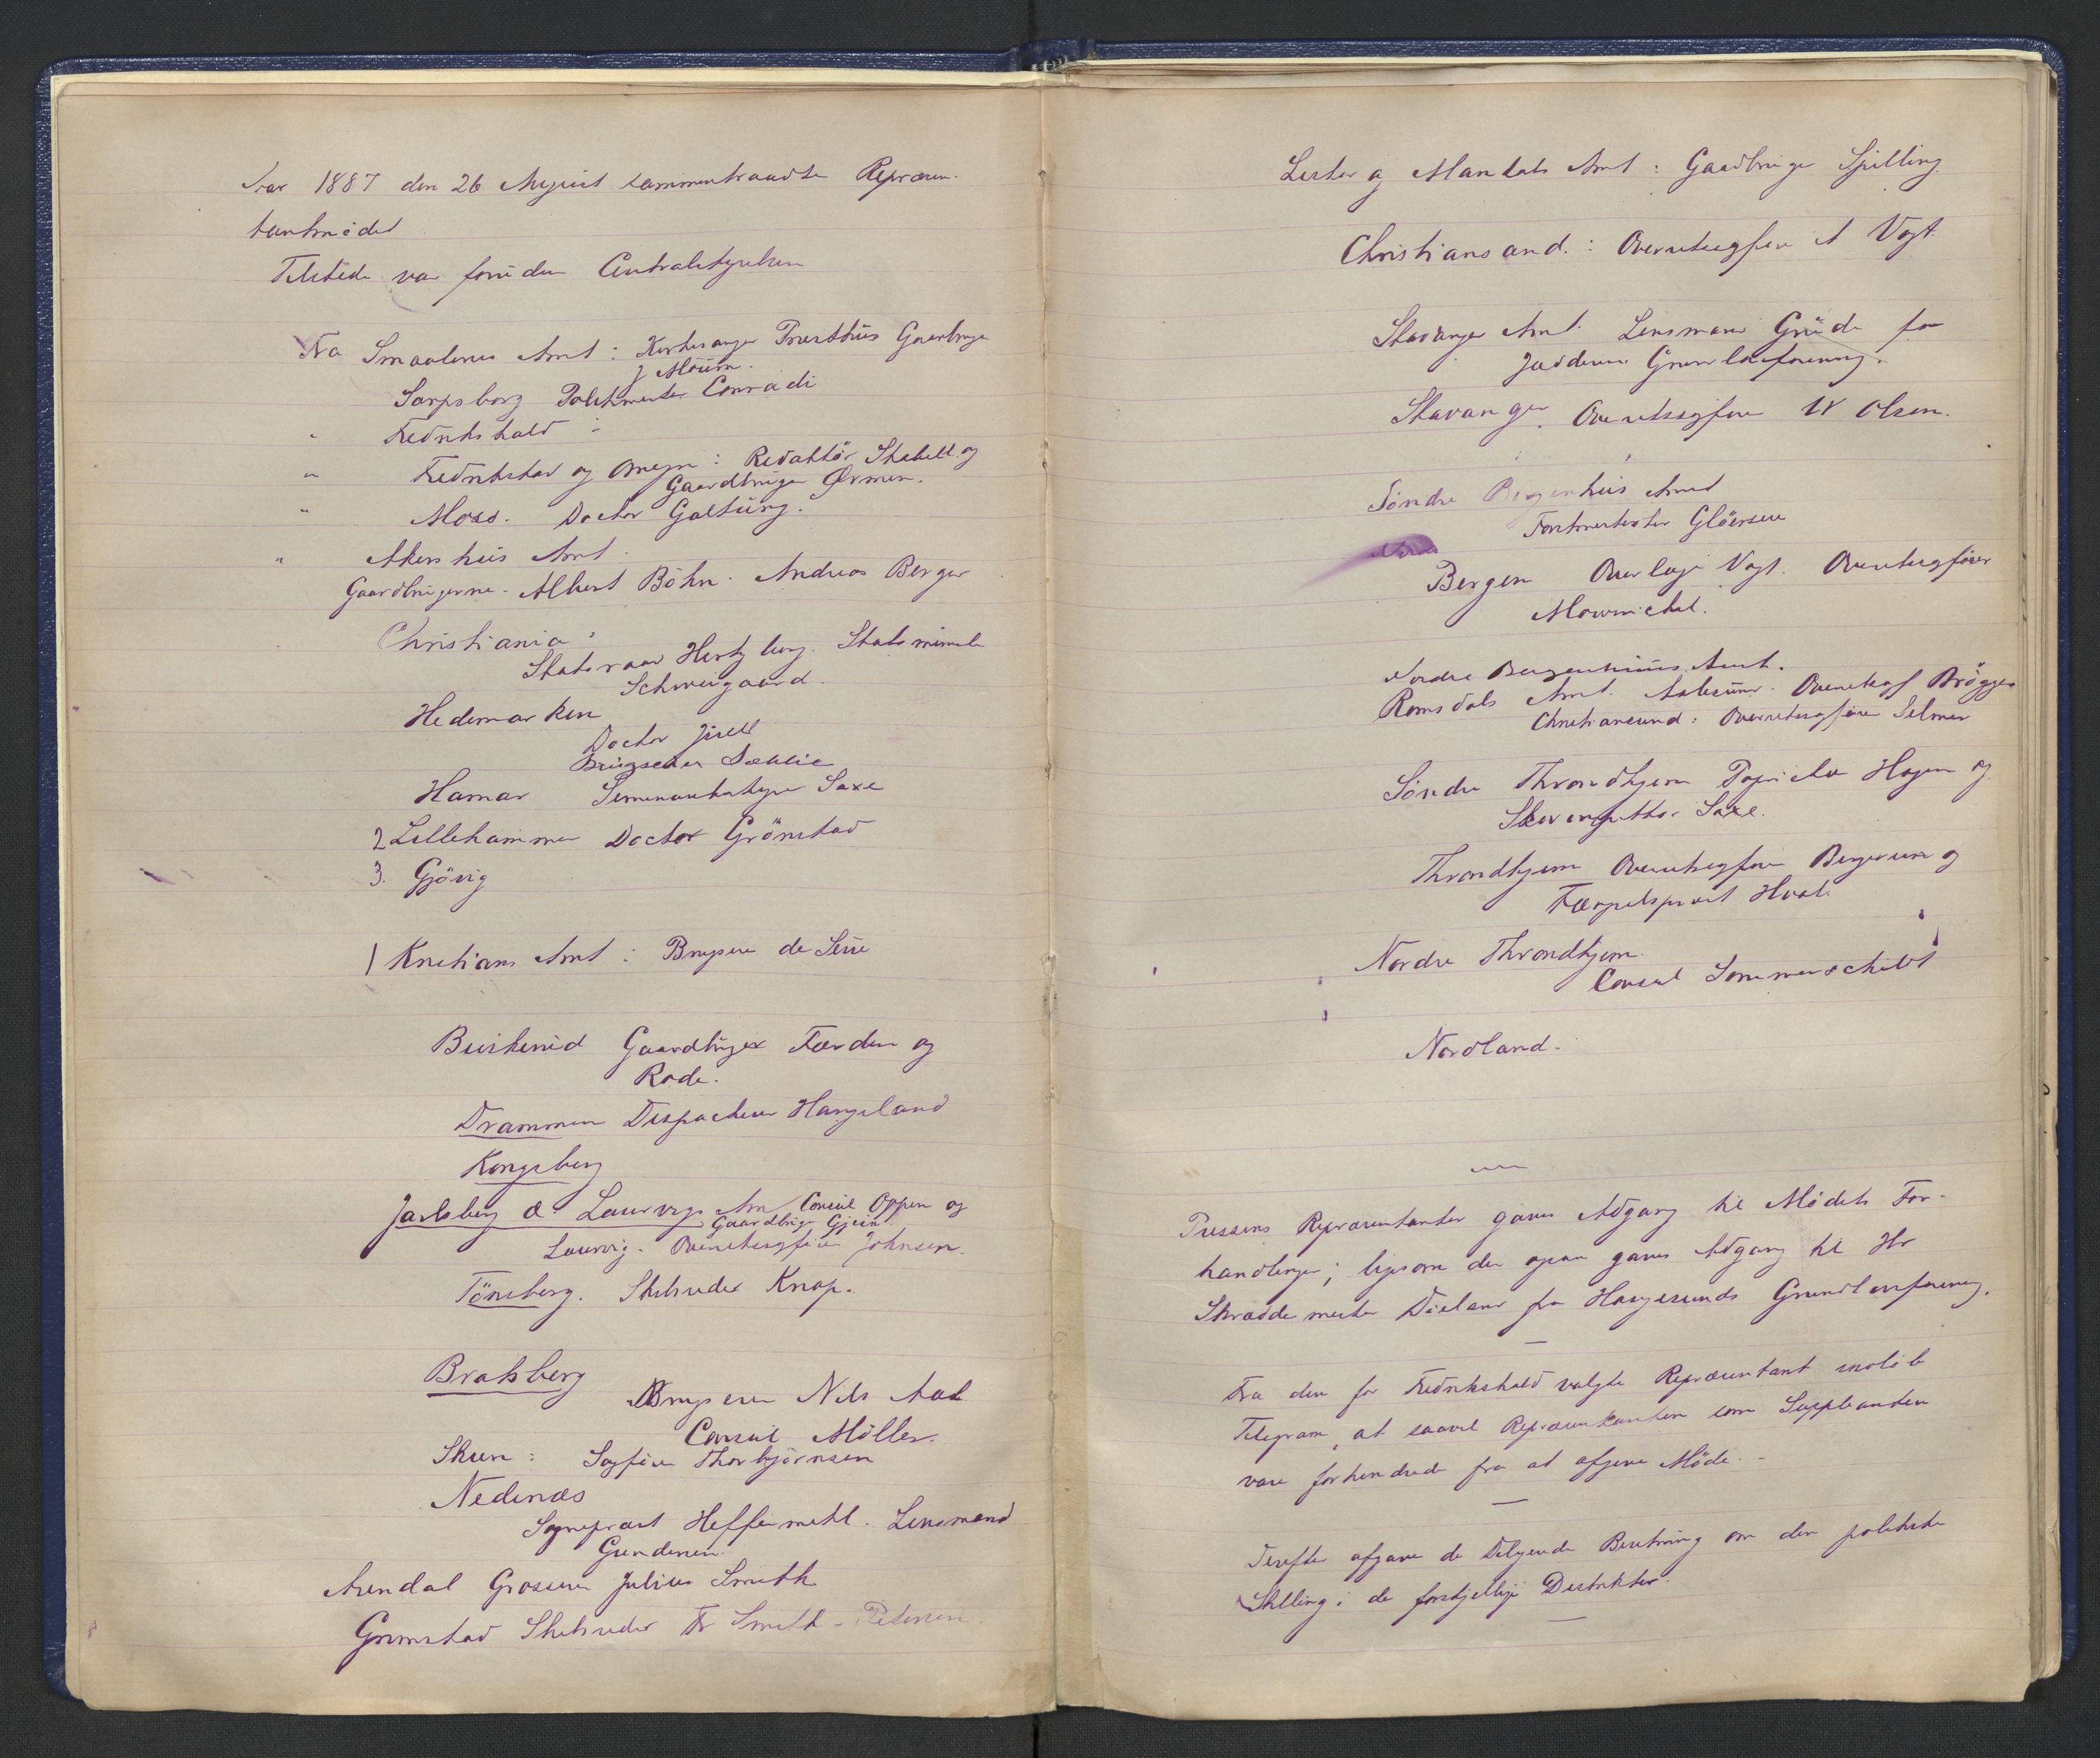 Aar 1887 den 26 August sammentraadte Repræsen-
tantmødet
Tilstede var foruden Centralstyrelsen
Fra Smaalenes Amt: Kirkesanger Præsthus Gaardbruger
J Mourn.
Sarpsborg Politimester Conradi
" Fredrikshald -
" Fredrikstad og Omegn: Redaktör Stabell og
Gaardbruger Ørmen.
" Moss. Doctor Galtung.
" Akershus Amt.
Gaardbrugerne. Albert Böhn. Andreas Berger
Christiania:
Statsraad Hertzberg. Statsminister
Schweigaard.
Hedemarken
Doctor Juell
Brugseier Sælie
Hamar Seminariebestyrer Saxe
2 Lillehammer Doctor Grönstad
3. Gjövig
1 Kristians Amt: Brugseier de Seue
Buskerud Gaardbruger Færden og
Rode.
Drammen Dispacheur Haugeland
Kongsberg
Jarlsberg & Laurvigs Amt Consul Oppen og
Gaardbruger Gjein
Laurvig. Overretssagfører Johnsen.
Tönsberg. Skibsreder Knap.
Bratsberg
Brugseier Nils Aal
Consul Möller.
Skien: Sagfører Thorbjörnsen
Nedenæs
Sogneprest Heffermehl. Lensmand
Gundersen.
Arendal Grosserer Julius Smith
Grimstad Skibsreder Fr Smith-Petersen.
Lister og Mandals Amt: Gaardbruger Spilling.
Christiansand.: Overretssagfører A Vogt.
Stavanger Amt. Lensmand Grude fra
Jædderens Grundlovsforening.
Stavanger. Overretssagfører W Olsen.
Söndre Bergenhus Amt
Forstmester Glöersen
Bergen Overlæge Vogt. Overretssagfører
Mowinckel.
Nordre Bergenhuus Amt.
Romsdals Amt. Aalesund. Overretssagf Brögger
Christiansund: Overretssagfører Selmer
Söndre Throndhjem Hagen og
Saxe.
Throndhjem Overretssagfører Bergersen og
Fængselsprest Hvoslef
Nordre Throndhjem.
Consul Sommerschild
Nordland.
Pressens Repræsentanter gaves Adgang til Mödets For-
handlinger; ligesom der ogsaa gaves Adgang til Hr
Skræddermester Dieland fra Haugesunds Grundlovsforening.
Fra den for Fredrikshald valgte Repræsentant indløb
Telegram, at saavel Repræsentanten som Suppleanden
vare forhindrede fra at afgive Möde. -
Derefter afgave de Delegerede Beretning om den politiske
Stilling i de forskjellige Distrikter.